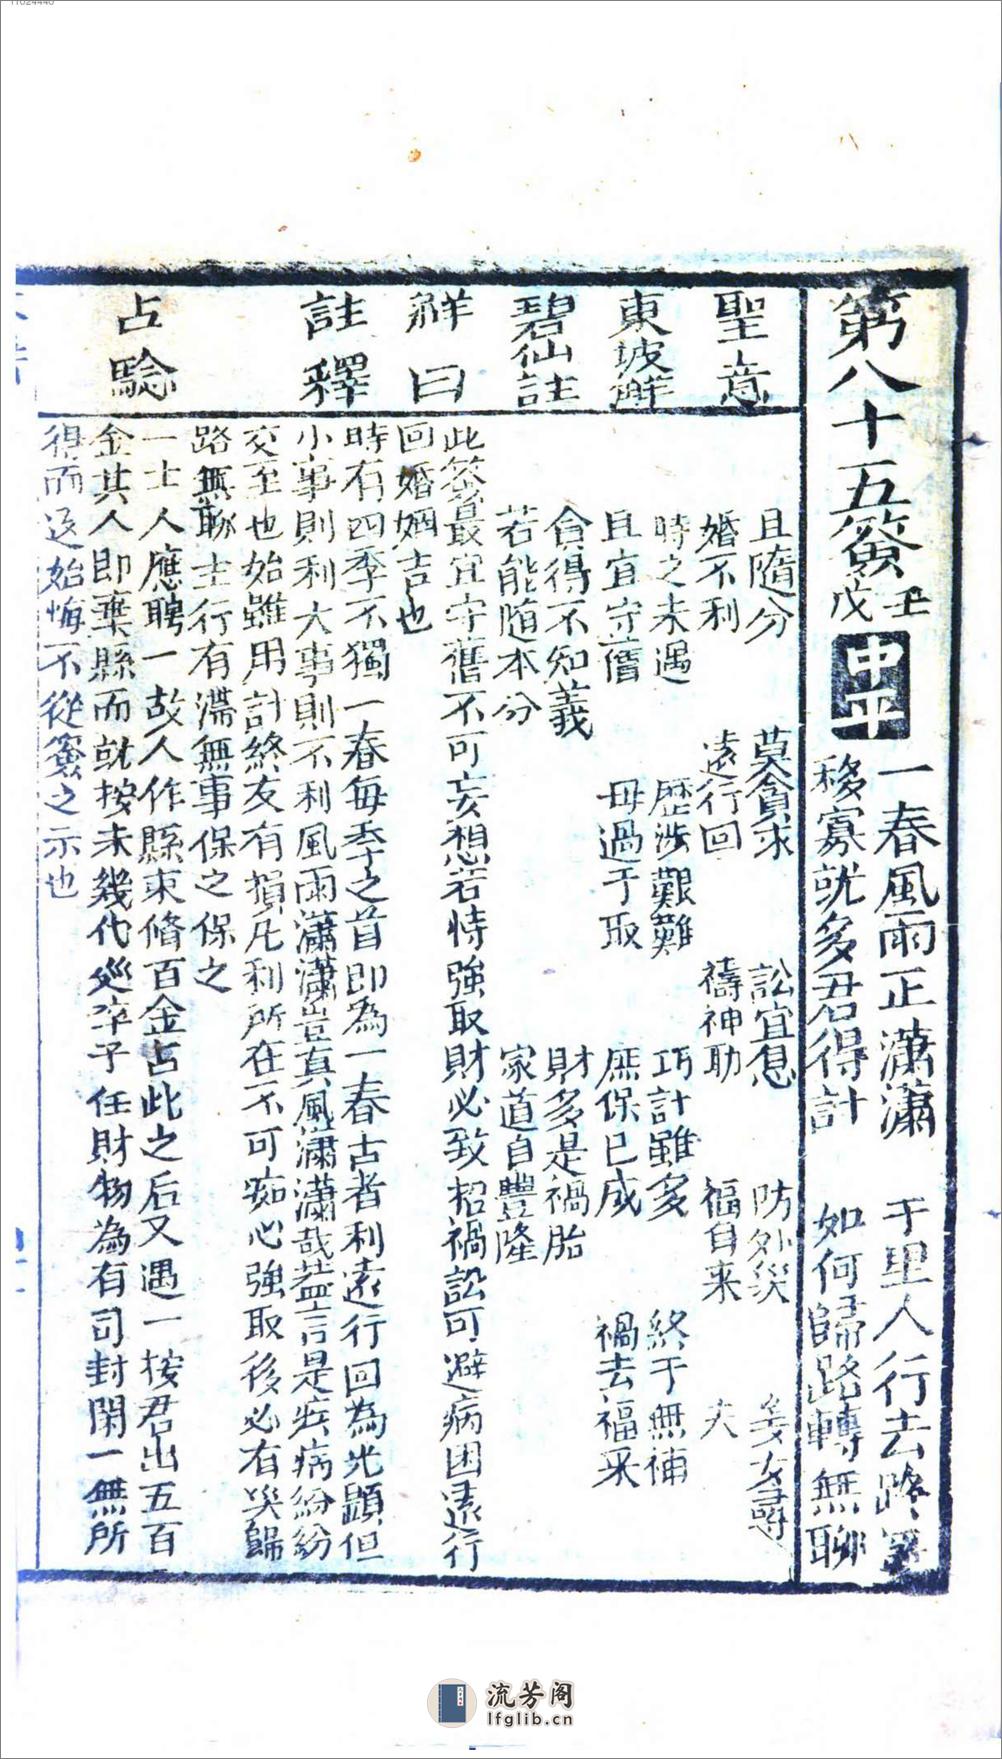 11024440
第八十五簽 壬戊 中平
一春風雨正瀟瀟 千里人行去路
移寡就多君得計 如何歸路轉無聊
聖意
且隨分 莫貪求 訟宜息 防外災
婚不利 遠行回 禱神助 福自来
東坡觧
時之未遇 歷涉艱難 巧計雖多 終于無補
且宜守舊 毋過于取 庶保已成 禍去福來
碧仙註
貪得不知義 財多是禍胎
若能隨本分 家道自豐隆
觧曰
此簽最宜守舊不可妄想若恃強取財必致招禍訟可避病困遠行
回婚姻吉也
註釋
時有四季不獨一春每季之首即為一春古者利遠行回為光顕但
小事則利大事則不利風雨瀟瀟豈真風瀟瀟哉葢言是疾病紛紛
交至也始雖用計終友有損凡利所在不可痴心強取移必有災歸
路無聊主行有滯無事保之保之
占驗
一士人應聘一故人作縣束脩百金占此之后又遇一按君出五百
金其人即棄縣而就按未幾代廵卒于任財物為有司封閉一無所
得而返始悔不從簽之示也
流芳阁
lfglib.cn